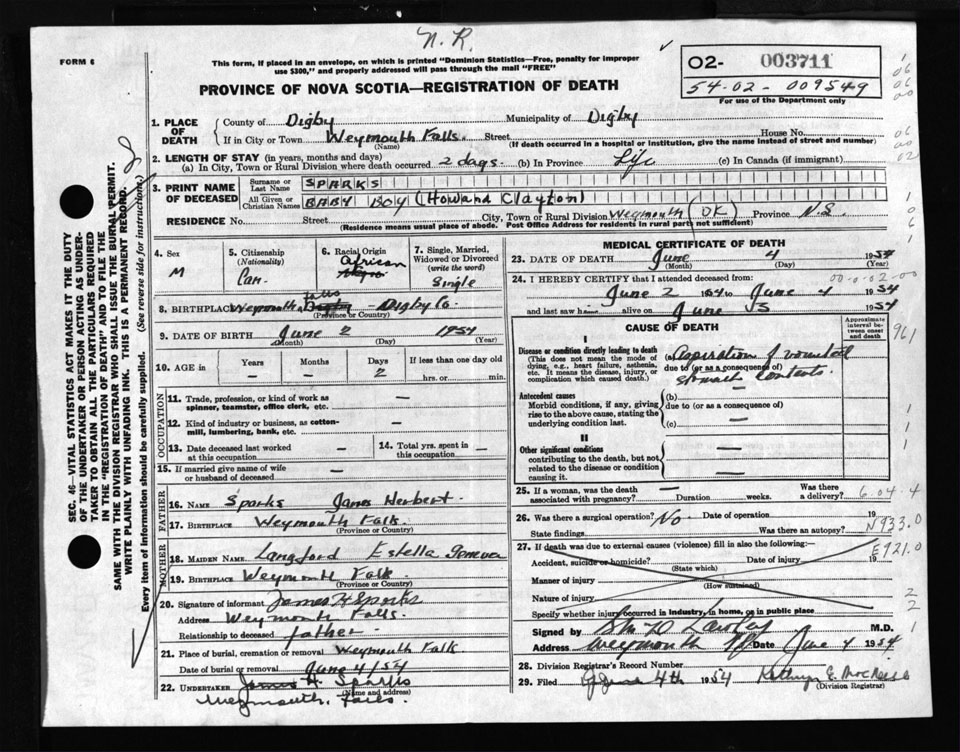 N. R.
FORM 6
This form, if placed in an envelope, on which is printed "Dominion Statistics—Free, penalty for improper
use $300," and properly addressed will pass through the mail "FREE"
02- 003711
54-02-009549
For use of the Department only
PROVINCE OF NOVA SCOTIA—REGISTRATION OF DEATH
1. PLACE OF DEATH { County of Digby Municipality of Digby
If in City or Town Weymouth Falls. Street House No.
(Name) (If death occurred in a hospital or institution, give the name instead of street and number)
2. LENGTH OF STAY (in years, months and days)
(a) In City, Town or Rural Division where death occurred 2 days. (b) In Province Life (c) In Canada (if immigrant)
3. PRINT NAME OF DECEASED { Surname or Last Name SPARKS
All Given or Christian Names BABY BOY (Howard Clayton)
RESIDENCE No. Street City, Town or Rural Division Weymouth (OK) Province N.S.
(Residence means usual place of abode. Post Office Address for residents in rural parts not sufficient)
4. Sex M
5. Citizenship (Nationality) Can.
6. Racial Origin African
7. Single, Married, Widowed or Divorced (write the word) Single
8. BIRTHPLACE Weymouth Falls - Digby Co.
(Province or Country)
9. DATE OF BIRTH June 2 1954
(Month) (Day) (Year)
10. AGE in Years — Months — Days 2 If less than one day old hrs. or min.
OCCUPATION
11. Trade, profession, or kind of work as spinner, teamster, office clerk, etc. —
12. Kind of industry or business, as cotton-mill, lumbering, bank, etc. —
13. Date deceased last worked at this occupation —
14. Total yrs. spent in this occupation —
15. If married give name of wife or husband of deceased —
FATHER
16. NAME Sparks James Herbert.
17. BIRTHPLACE Weymouth Falls.
MOTHER
18. MAIDEN NAME Langford Estella
19. BIRTHPLACE Weymouth Falls.
(Province or Country)
20. Signature of informant James H Sparks
Address Weymouth Falls.
Relationship to deceased father
21. Place of burial, cremation or removal Weymouth Falls.
Date of burial or removal June 4/54
22. UNDERTAKER James H. Sparks
(Name and address)
Weymouth. Falls.
MEDICAL CERTIFICATE OF DEATH
23. DATE OF DEATH June 4 1954
(Month) (Day) (Year)
24. I HEREBY CERTIFY that I attended deceased from:
June 2 1954 to June 4 1954
and last saw h alive on June 3 1954
CAUSE OF DEATH
Approximate interval between onset and death
I
Disease or condition directly leading to death
(This does not mean the mode of dying, e.g., heart failure, asthenia, etc. It means the disease, injury, or complication which caused death.)
(a) Aspiration of vomited
due to (or as a consequence of)
stomach contents.
Antecedent causes
Morbid conditions, if any, giving rise to the above cause, stating the underlying condition last.
(b) —
due to (or as a consequence of)
(c) —
II
Other significant conditions
contributing to the death, but not related to the disease or condition causing it.
25. If a woman, was the death associated with pregnancy? — Duration weeks. Was there a delivery?
26. Was there a surgical operation? No Date of operation 19
State findings Was there an autopsy?
27. If death was due to external causes (violence) fill in also the following:—
Accident, suicide or homicide? Date of injury 19
(State which)
Manner of injury
(How sustained)
Nature of injury
Specify whether injury occurred in industry, in home, or in public place
Signed by M.D.
Address Weymouth NS Date June 4 1954
28. Division Registrar's Record Number
29. Filed June 4th 1954
(Division Registrar)
6.04.4
N933.0
E921.0
961
SEC. 46—VITAL STATISTICS ACT MAKES IT THE DUTY
OF THE UNDERTAKER OR PERSON ACTING AS UNDERTAKER
TO OBTAIN ALL THE PARTICULARS REQUIRED
IN THE "REGISTRATION OF DEATH" AND TO FILE THE
SAME WITH THE DIVISION REGISTRAR WHO SHALL ISSUE THE BURIAL PERMIT.
WRITE PLAINLY WITH UNFADING INK. THIS IS A PERMANENT RECORD.
Every item of information should be carefully supplied. (See reverse side for instructions.)